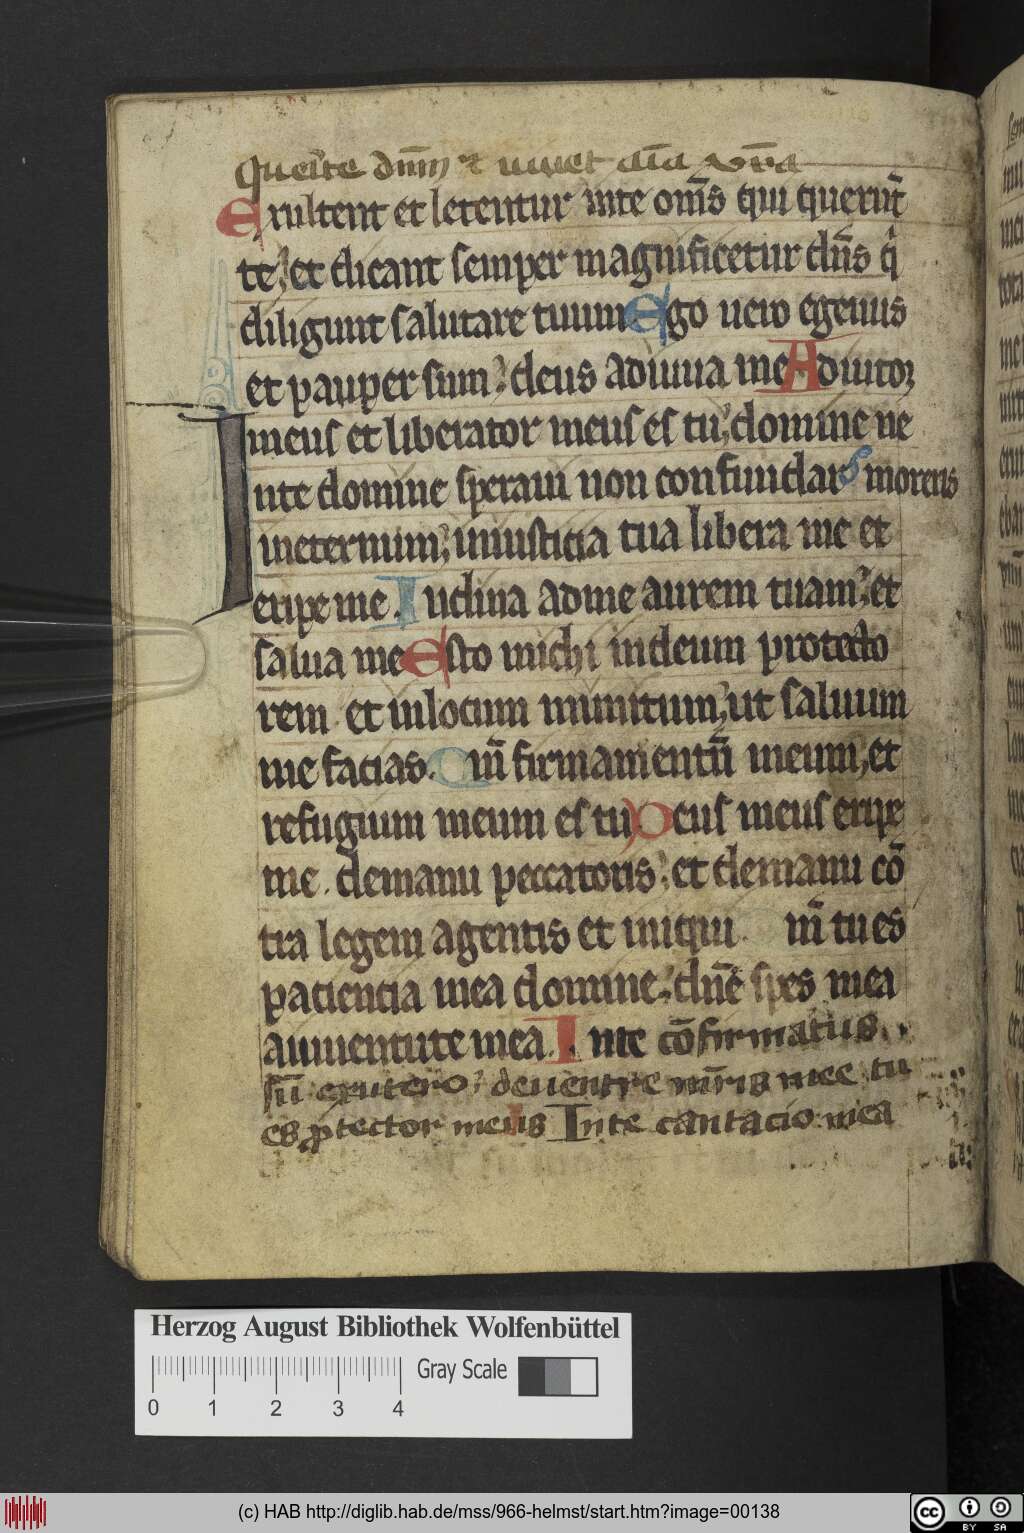 Querite dn̄m ⁊ uiuet aīa vr̄a
Exultent et letentur inte om̄s qui querūt
te; et dicant semper magnificetur dn̄s q̇
diligunt salutare tuum Ego uero egenus
et pauper sum; deus adiuua me Adiutor
meus et liberator meus es tu; domine ne
Inte domine speraui non confundar moreris
ineternum; iniusticia tua libera me et
eripe me. Inclina adme aurem tuam; et
salua me Esto michi indeum protecto
rem et inlocum munitum; ut saluum
me facias. Qm̄ firmamentū meum, et
refugium meum es tu Deus meus eripe
me. demanu peccatoris; et demanu cō
tra legem agentis et iniqui m̄ tu es
paciencia mea domine; dn̄e spes mea
aiuuentute mea. Inte cōfirmatus
sū exutero; deuentre mr̄is mee tu
es ꝓtector meus Inte cantacio mea
Herzog August Bibliothek Wolfenbüttel
Gray Scale
0 1 2 3 4
(c) HAB http://diglib.hab.de/mss/966-helmst/start.htm?image=00138
cc BY SA